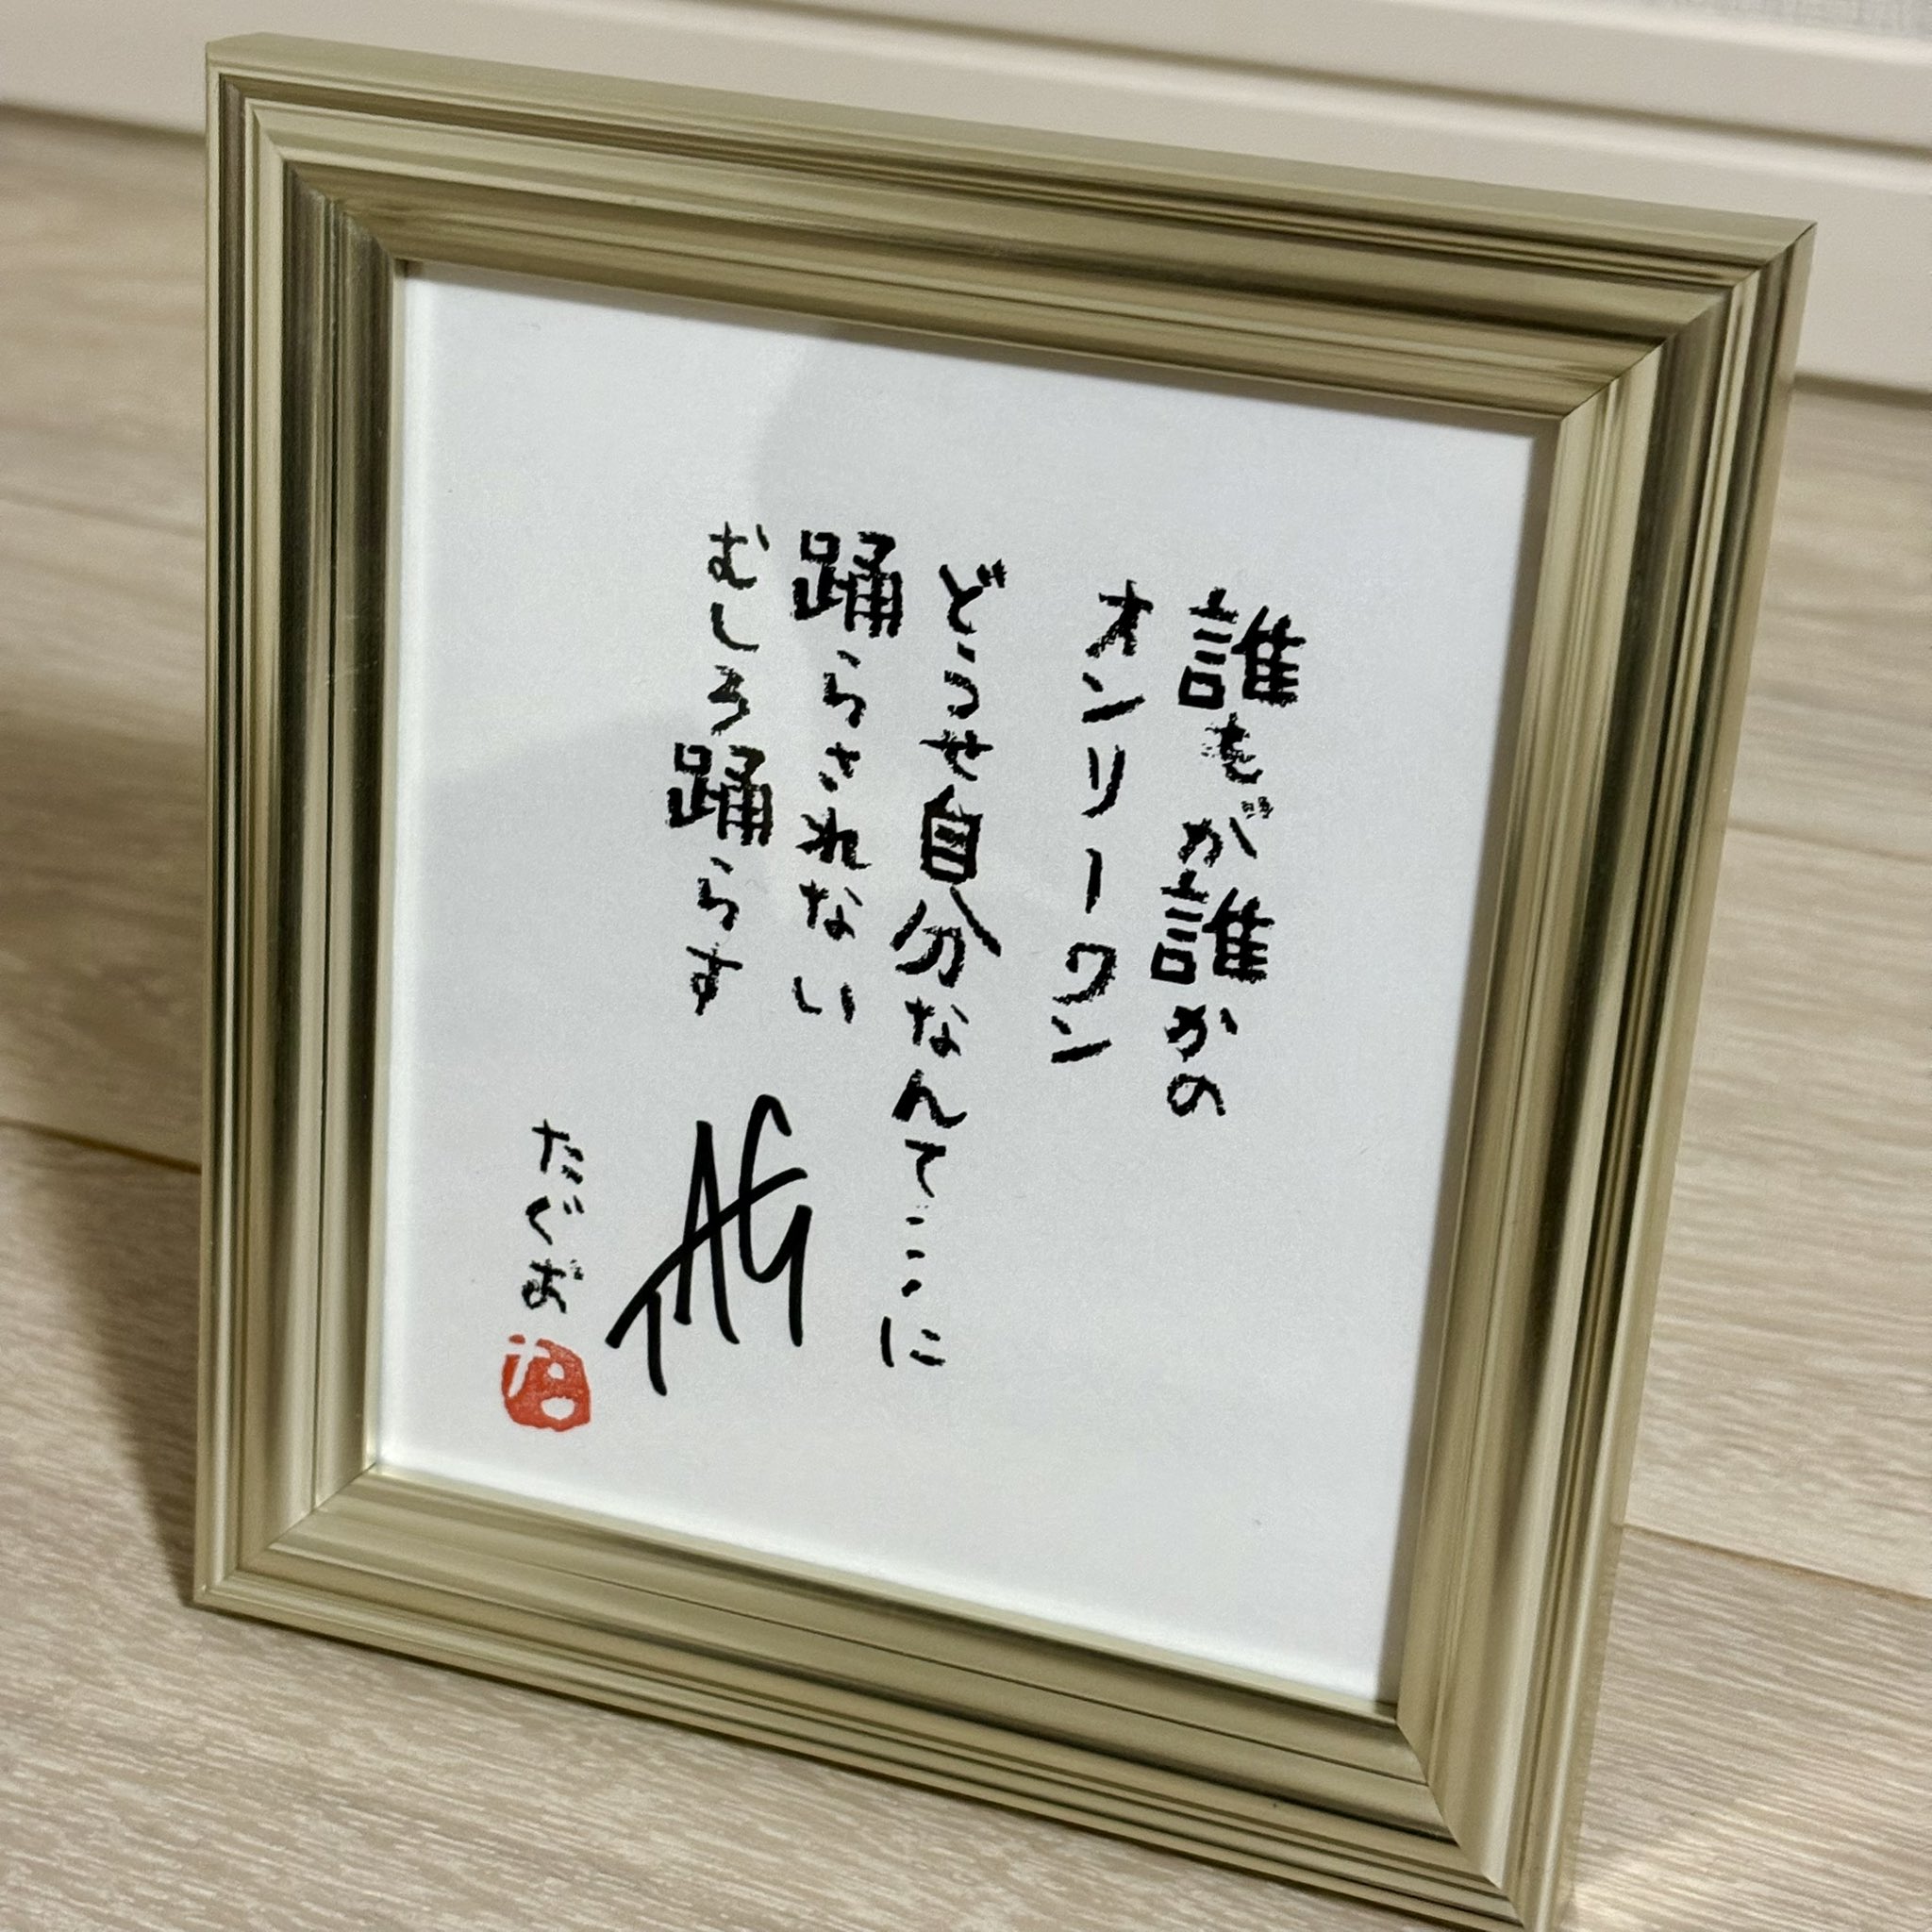 誰もが誰かの
オンリーワン
どうせ自分なんてここに
踊らされない
むしろ踊らす
TAG
たぐお